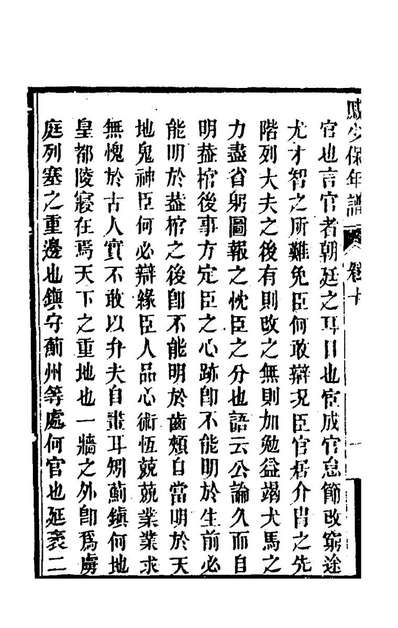 戚少保年譜
卷十
官也言官者朝廷之耳目也宦成官怠節改窮途
尤才智之所難免臣何敢辯况臣官居介胄之先
階列大夫之後有則改之無則加勉益竭犬馬之
力盡省躬圖報之忱臣之分也語云公論久而自
明葢棺後事方定臣之心跡卽不能明於生前必
能明於葢棺之後卽不能明於齒頰自當明於天
地鬼神臣何必辯緣臣人品心術恆兢兢業業求
無愧於古人實不敢以弁夫自畫耳矧薊鎮何地
皇都陵寢在焉天下之重地也一牆之外卽爲虜
庭列塞之重邊也鎮守薊州等處何官也延袤二